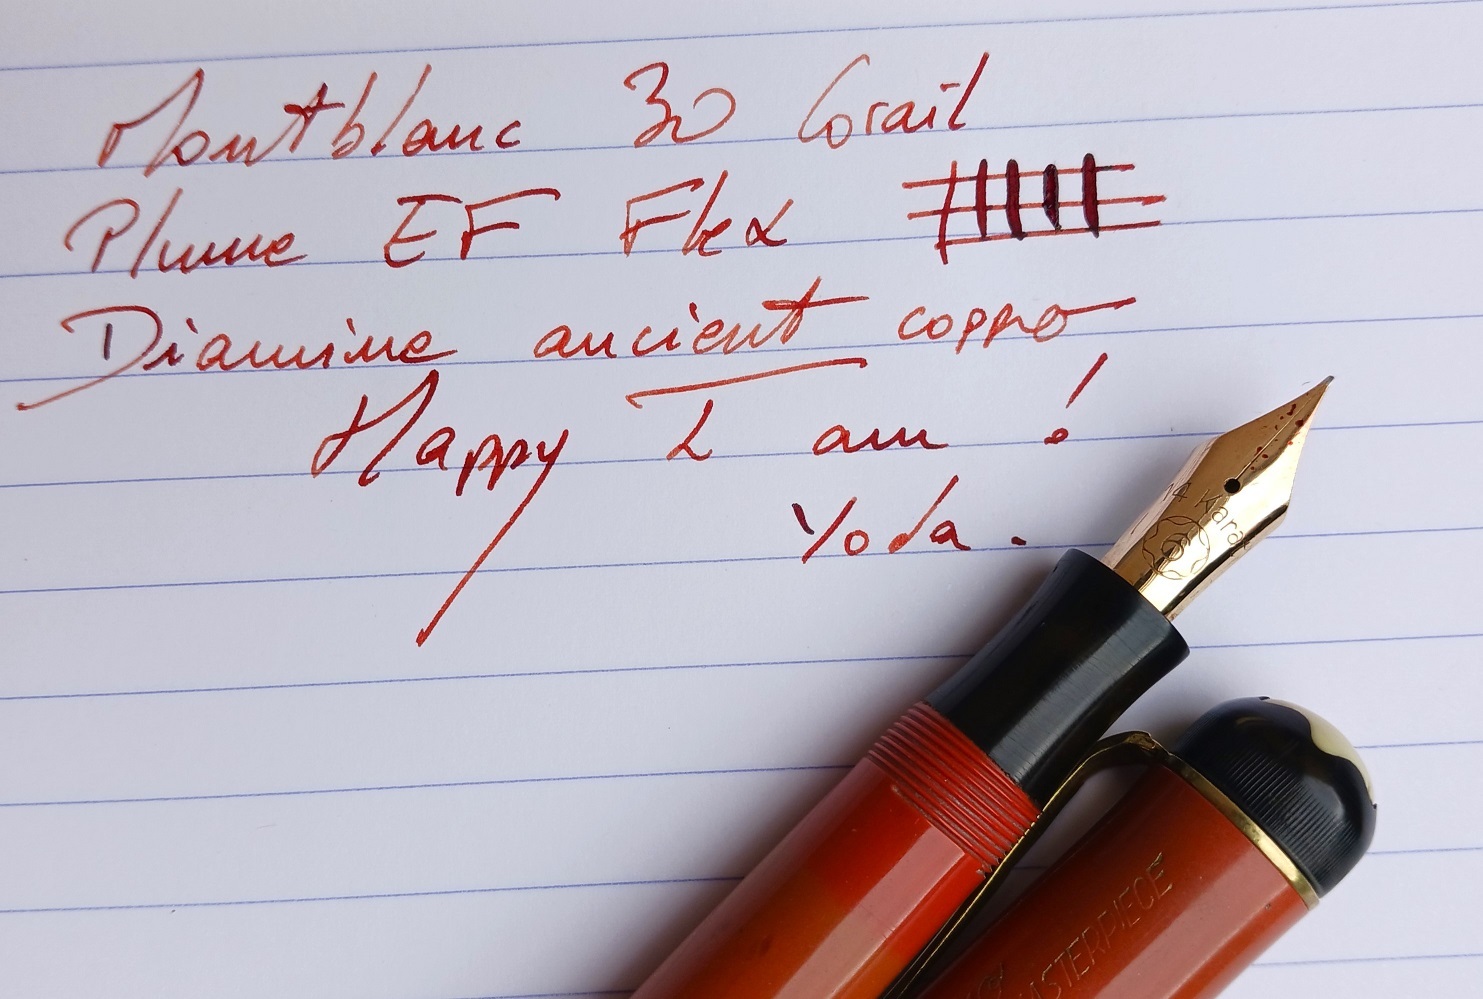 Montblanc 30 Corail
Plume EF Flex
Diamine ancient copper
Happy I am !
Yoda .
14 Karat
MASTERPIECE